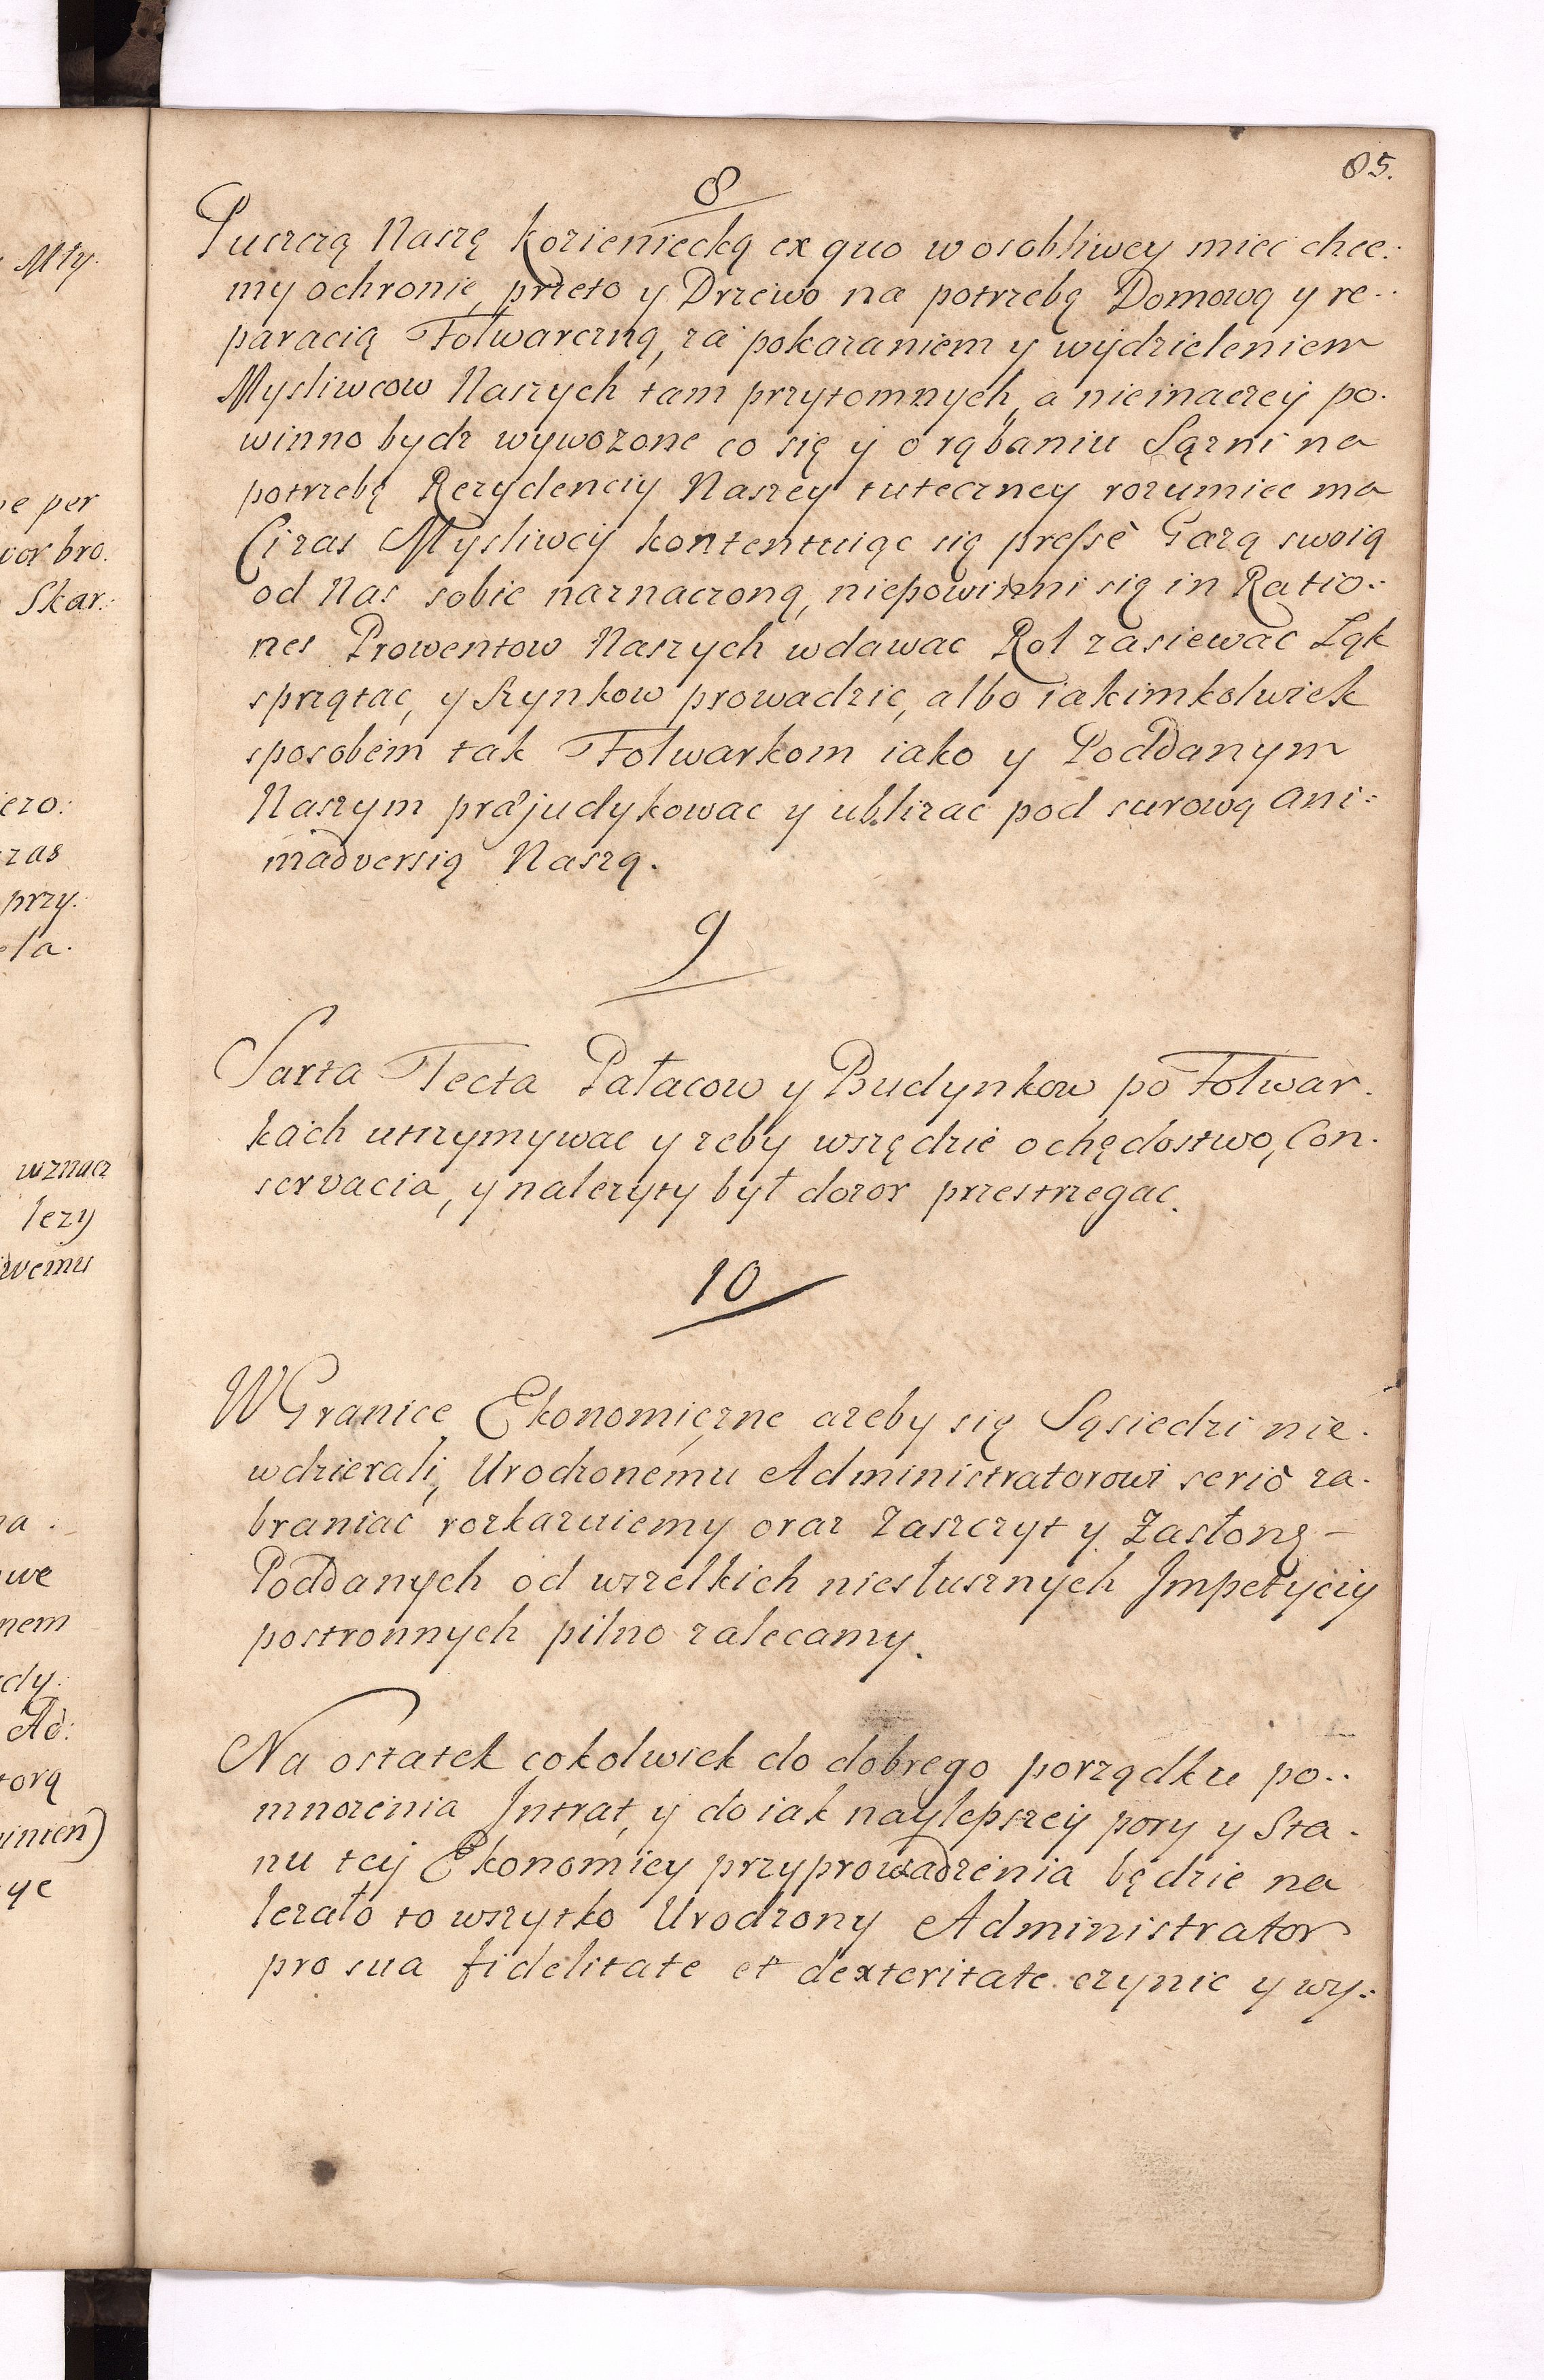 85.
8
Puszczą Naszę Kozieniecką ex quo w osobliwey miec chce:
my ochronie, przeto y Drzewo na potrzebę Domową y re-
paracią Folwarczną, za pokazaniem y wydzieleniem
Mysliwcow Naszych tam przytomnych, a nieinaczey po.
winno bydz wywozone co się y o rąbaniu Sązni na
potrzebę Rezydenciy Naszey tuteczney rozumiec ma
Ciz as Mysliwcy kontentuiąc się Gazą swoią
od Nas sobie naznaczoną, niepowinni się in Ratio:
nes Prowentow Naszych wdawac Rol zasiewac Ląk
sprzątac, y Szynkow prowadzic, albo iakimkolwiek
sposobem tak Folwarkom iako y Poddanym
Naszym præjudykowac y ublizac pod surową ani:
madversią Naszą.
9
Sarta Tecta Pałacow y Budynkow po Folwar.
kach utrzymywac y zeby wszędzie ochędostwo, Con.
servacia, y nalezyty był dozor przestrzegac.
10
W Granice Ekonomiczne azeby się Sąsiedzi nie.
wdzierali, Urodzonemu Administratorowi serio za.
braniac rozkazuiemy oraz Zaszczyt y Zasłonę –
Poddanych od wszelkich niesłusznych Impetyciy
postronnych pilno zalecamy.
Na ostatek cokolwiek do dobrego porządku po..
mnozenia Intrat, y do iak naylepszey pory y Sta.
nu tey Ekonomiey przyprowadzenia będzie na
lezało to wszytko Urodzony Administrator
pro sua fidelitate et dexteritate czynic y wy:
Mły.
per
bro.
Skar:
przy.
wznacz
lezy